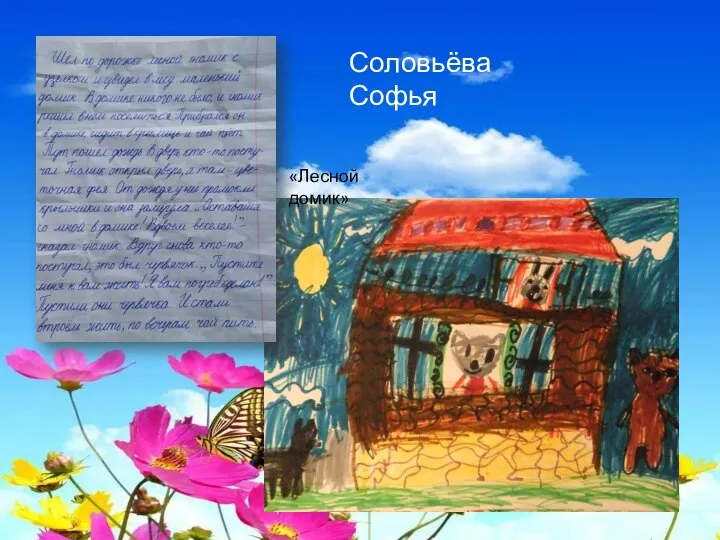 Шёл по дорожке лесной гномик с
узелком и увидел в лесу маленький
домик. В домике никого не было, и гномик
решил в нём поселиться. Прибрался он
в домике, сидит в креслице и чай пьёт.
Тут пошёл дождь. В дверь кто-то посту-
чал. Гномик открыл дверь, а там - цве-
точная фея. От дождя у ни промокли
крылышки и она замёрзла. „Оставайся
со мной в домике! Вдвоём веселее!"-
сказал гномик. Вдруг снова кто-то
постучал, это был червячок. „Пустите
меня к вам жить! Я вам
Пустили они червячка. И стали
втроём жить, по вечерам чай пить.
Соловьёва
Софья
«Лесной
домик»